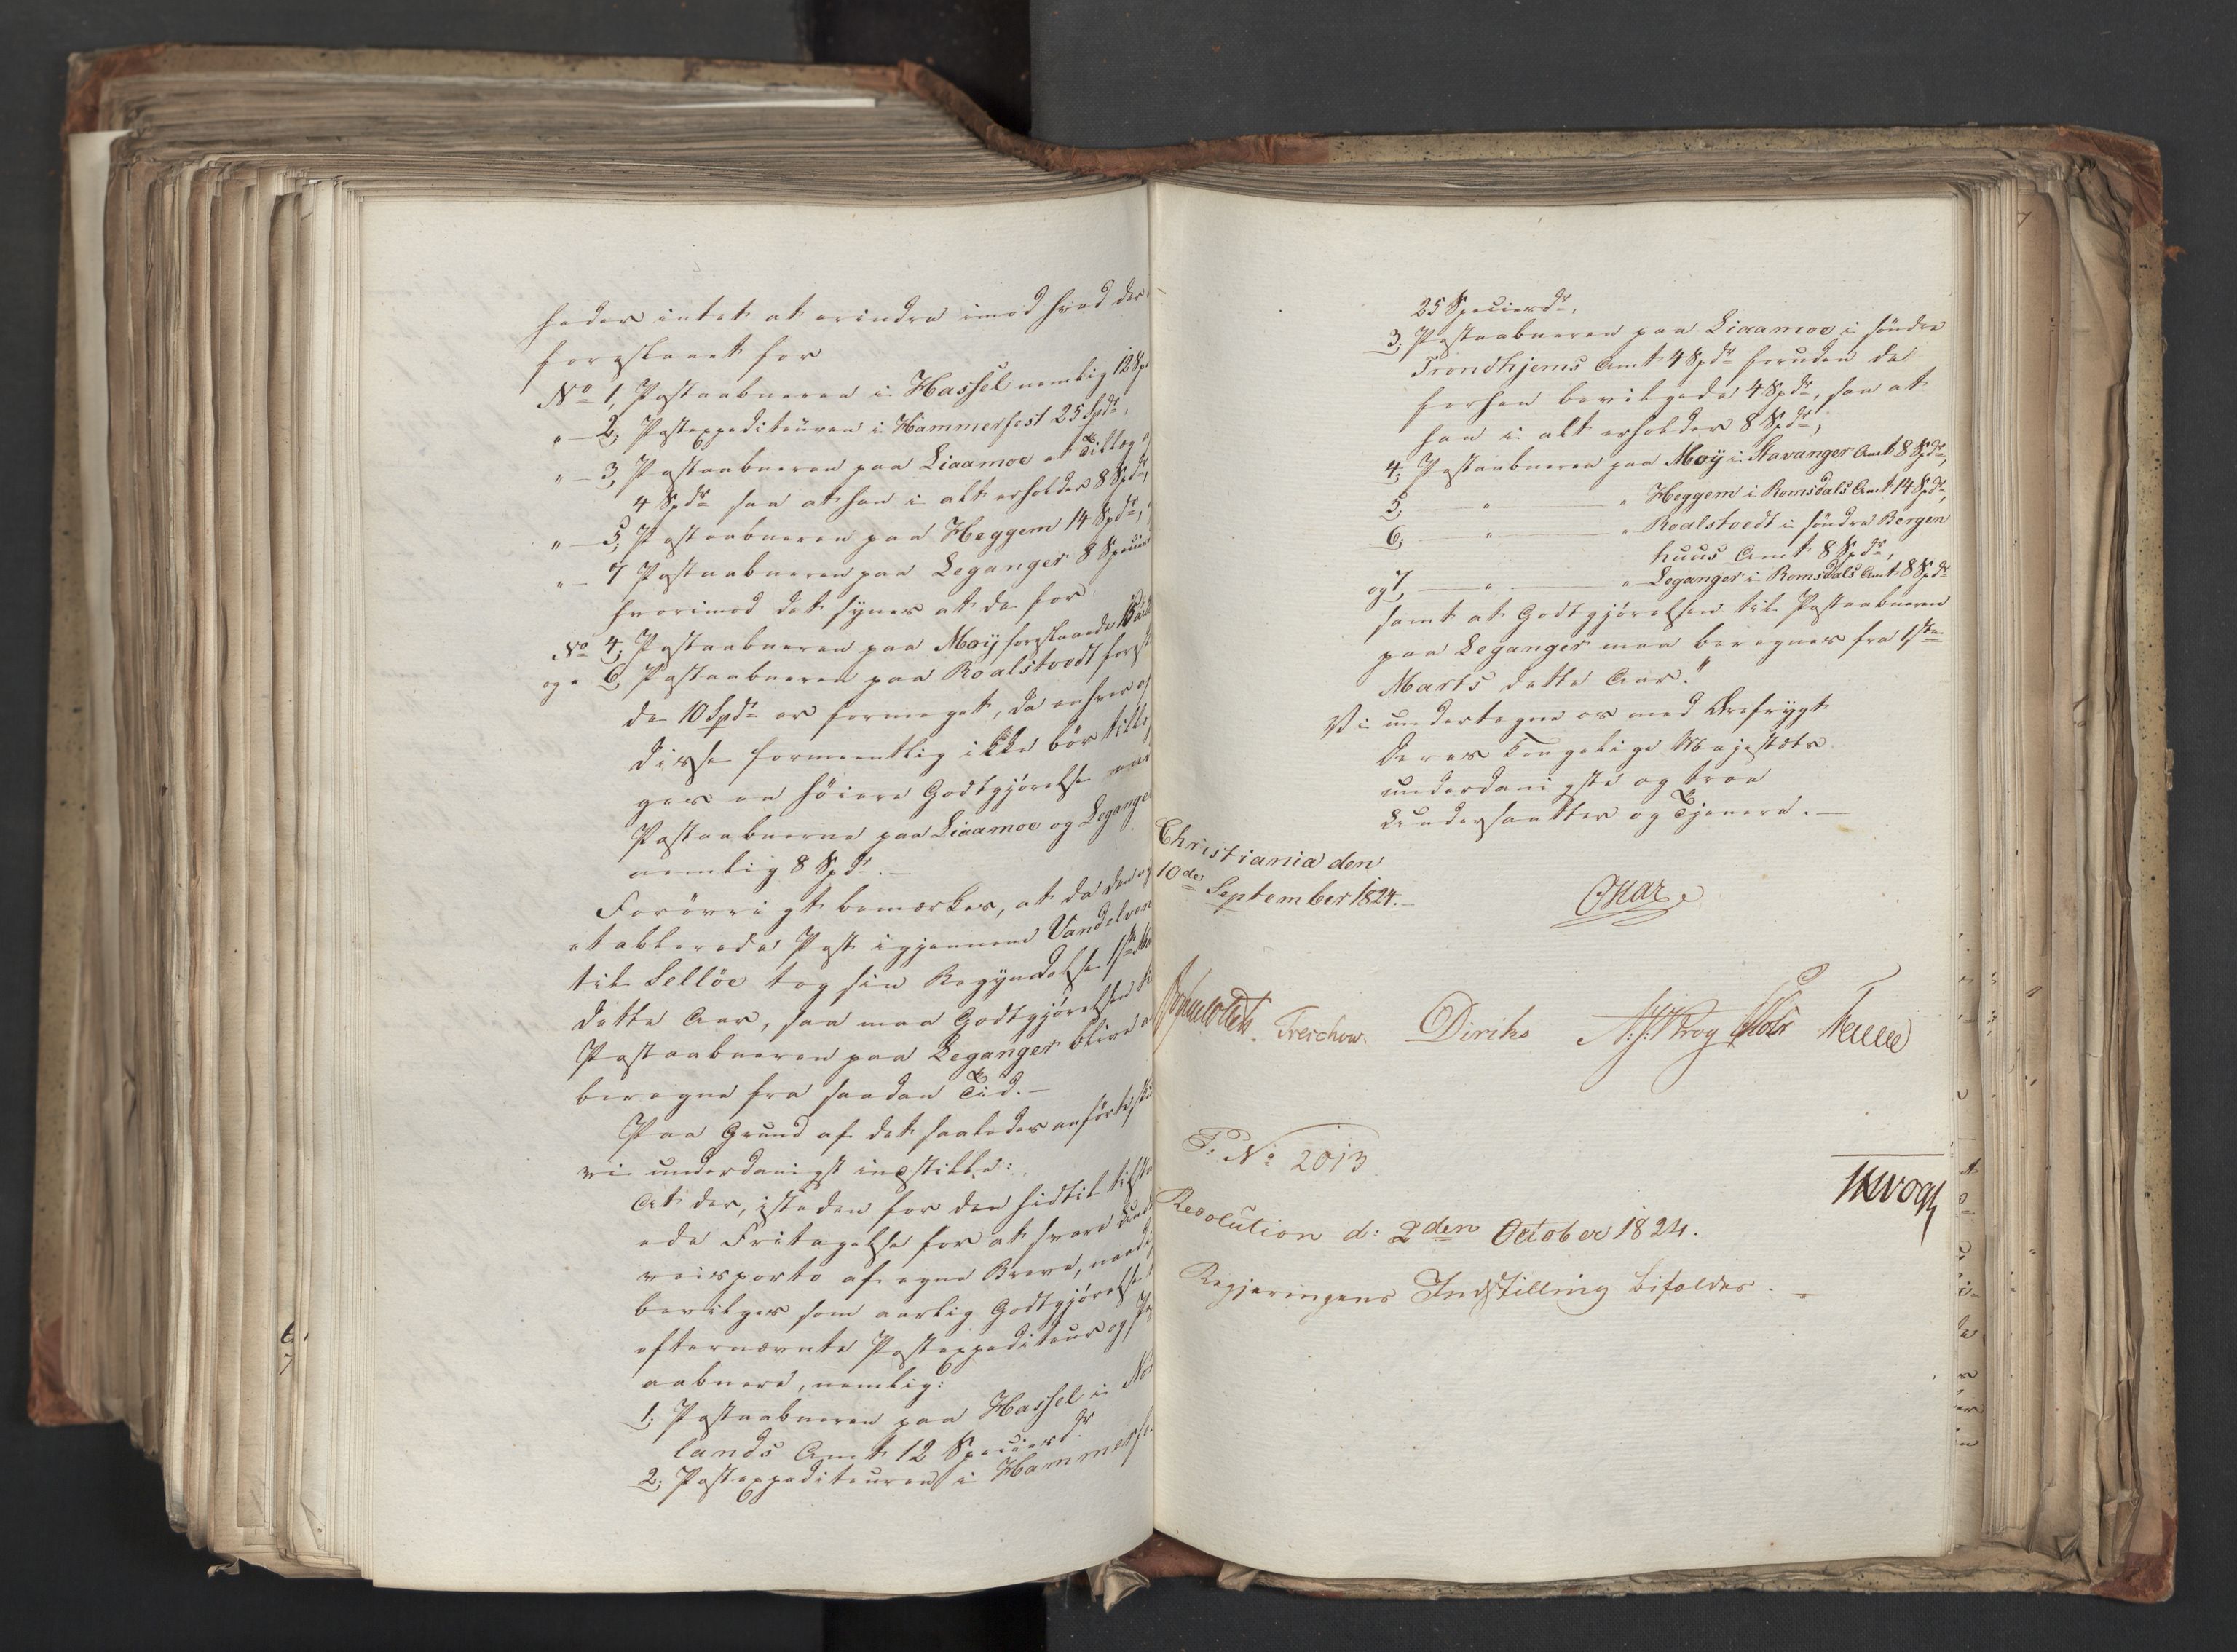 heder intet at erindre imod hvad der
foreslaaet for
No 1, Postaabneren i Hassel nemlig 12 Sp
" — 2, Postexpediteüren i Hammerfest 25 Spdr,
" — 3, Postaabneren paa Liaamoe et Tillæg
4 Spdr saa at han i alt erholder 8 Spdr,
" — 5, Postaabneren paa Heggem 14 Spdr,
" — 7 Postaabneren paa Leganger 8 Specier
hvorimod det synes at de for
No 4, Postaabneren paa Moÿ foreslaaede
og " 6, Postaabneren paa Roalstvedt foresl
de 10 Spdr er formeget, da enhver af
disse formeentlig ikke bör tillæg
ges en höiere Godtgjörelse end
Postaabnerne paa Liaamoe og Leganger
nemlig 8 Spdr. —
Forövrigt bemærkes, at da den ny
etablerede Post igjennem Vandelven
til Selløe tog sin Begyndelse 1ste Ma
dette Aar, saa maa Godtgjörelsen t
Postaabneren paa Leganger blive a
beregne fra saadan Tid. —
Paa Grund af det saaledes anförte,
vi underdanigst indstille:
At der, istedenfor den hidtil tilsta
ede Fritagelse for at svare
veisporto af egne Breve, naadi
bevilges som aarlig Godtgjörelse
efternævnte Postexpediteur og Po
aabnere, nemlig:
1, Postaabneren paa Hassel i Nor
lands Amt 12 Speciesdr.
2, Postexpediteuren i Hammerfe
25 Speciesdr,
3, Postaabneren paa Liaamoe i söndre
Trondhjems Amt 4 Spdr foruden de
forhen bevilgede 4 Spdr, saa at
han i alt erholder 8 Spdr,
4, Postaabneren paa Moÿ i Stavanger Amt 8 Spdr,
5, — " — " Heggem i Romsdals Amt 14 Spdr,
6, — " — " Roalstvedt i söndre Bergen
huus Amt 8 Spdr,
og 7, — " — " Leganger i Romsdals Amt 8 Spdr
samt at Godtgjörelsen til Postaabneren
paa Leganger maa beregnes fra 1ste
Marts dette Aar."
Vi undertegne os med Ærefrygt
Deres Kongelige Majestæts
underdanigste og troe
Undersaatter og Tjenere. —
Christiania den
10de September 1824. —
Oscar
Treschow. Diriks
P: No 2013
Resolution d: 2den October 1824.
Regjeringens Indstilling bifaldes. —